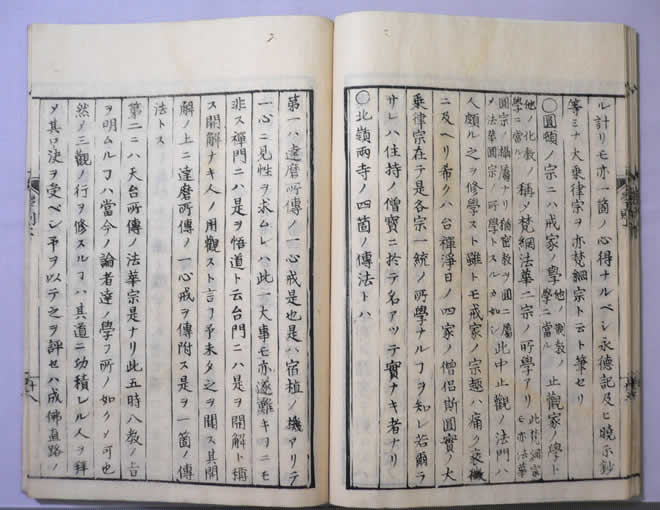 ル計リモ亦一箇ノ心得ナルベシ永德記及ヒ曉示鈔
等ミナ大乗律宗ヲ亦梵網宗ト云ト筆セリ
○圓頓ノ宗ニハ戒家ノ學 他ノ教ノ學ニ當ル 止觀家ノ學ト
他ノ化教ノ學ニ當ル 稱メ梵網法華二宗ノ所學アリ 此梵網家モ亦法華
圓宗ノ攝屬ナリ猶密教ヲ圓ニ屬メ法華圓宗ノ所學トスルカ如シ 此中止觀ノ法門ハ
人頗ル之ヲ修學スト雖トモ戒家ノ宗趣ハ痛ク衰微
ニ及ヘリ希クハ台禪淨日ノ四家ノ僧侶斯圓實ノ大
乗律宗在テ是各宗一統ノ所學ナルヿヲ知レ若爾ラ
サレハ住持ノ僧寶ニ於テ名アッテ實ナキ者ナリ
○北嶺兩寺ノ四箇ノ傳法トハ
第一ハ達磨所傳ノ一心戒是也是ハ宿植ノ機アリテ
一心ニ見性ヲ求ムレハ此一大事モ亦遂難キヿニモ
非ス禪門ニハ是ヲ悟道ト云台門ニハ是ヲ開解ト稱
ス開解ナキ人ノ用觀スト言フ予未タ之ヲ聞ス其開
解ノ上ニ達磨所傳ノ一心戒ヲ傳附ス是ヲ一箇ノ傳
法トス
第二ニハ天台所傳ノ法華宗是ナリ此五時八教ノ旨
ヲ明ムルヿハ當今ノ論者達ノ學フ所ノ如クメ可也
然ノ三觀ノ行ヲ修スルヿハ其道ニ功積レル人ヲ拜
メ其口決ヲ受ベシ予ヲ以テ之ヲ評セハ成佛直路ノ